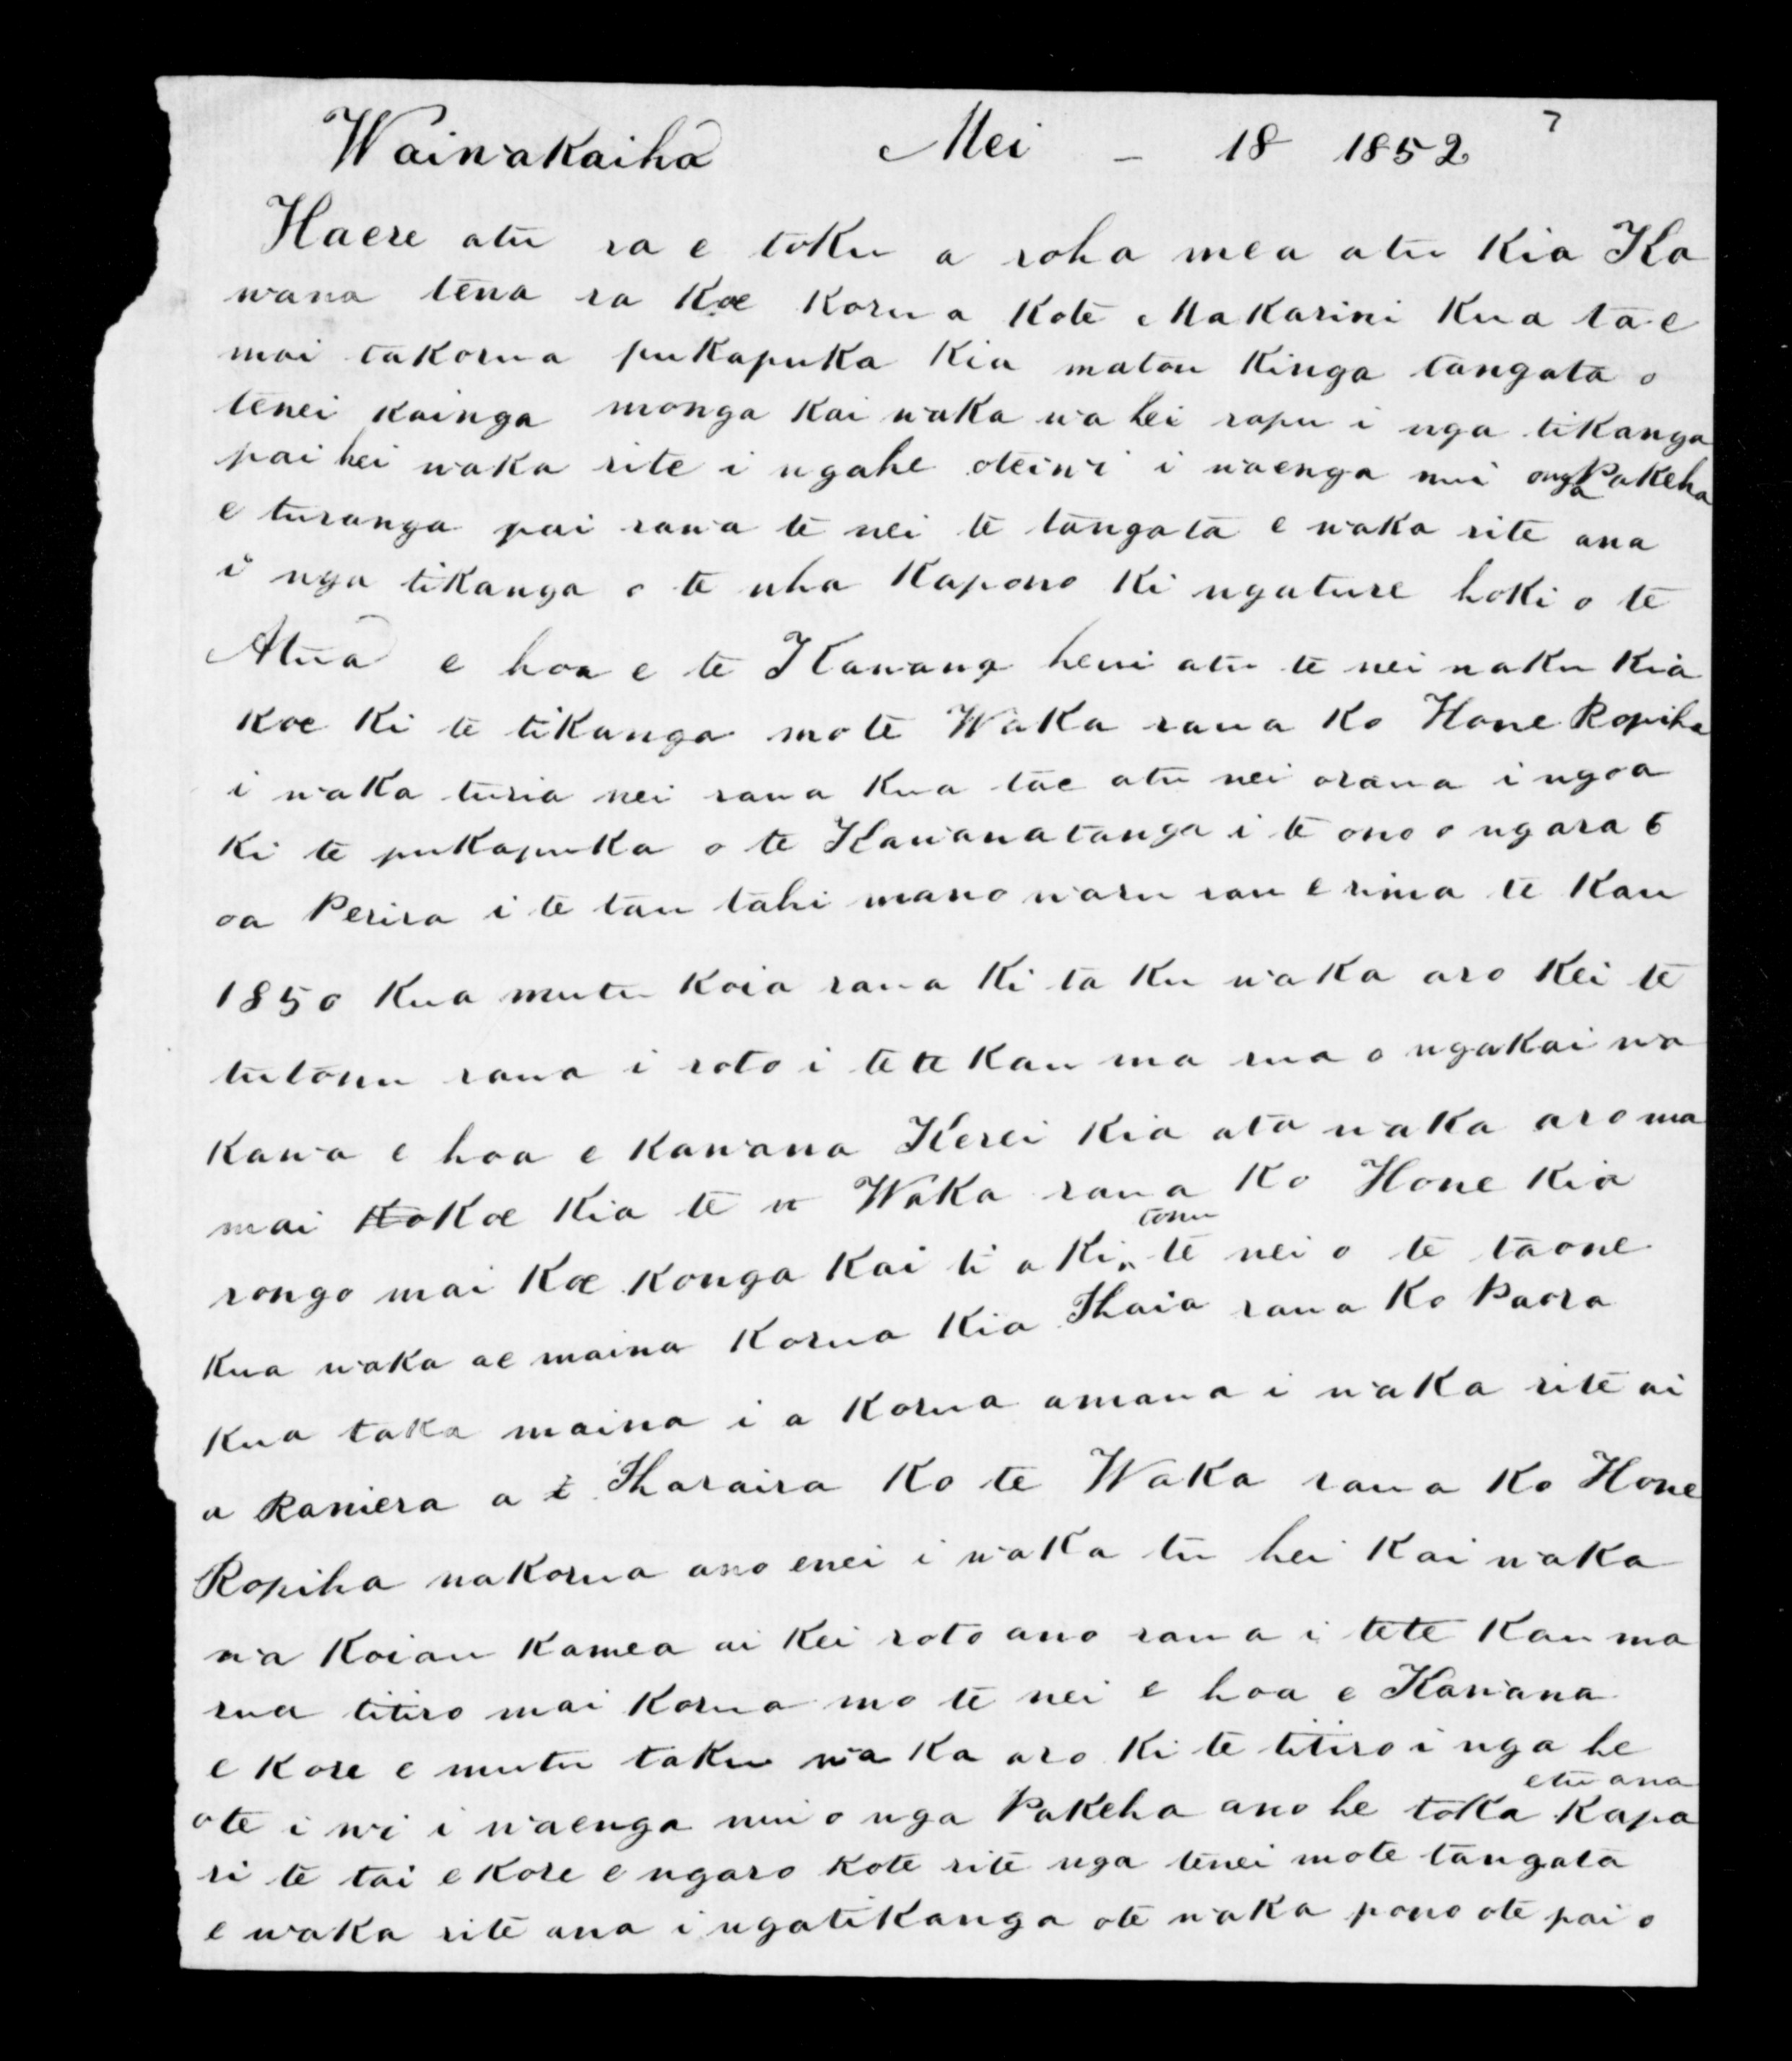 Wainakaiha Mei - 18 1852 7
Haere atu ra e toku a roha mea atu Kia Ka
wana tena ra Koe Korua Kote Makarini Kua tae
mai takorua pukapuka Kia matou Kinga tangata o
tenei Kainga monga Kai waka wa hei rapu i nga tikanga
pai hei waka rite i ngahe oteiwi i waenga nui onga Pakeha
e turanga pai rawa te nei te tangata e waka rite ana
i nga tikanga o te uha Kapono Ki ngature hoki o te
Atua e hoa e te Kawana heui atu te nei naku Kia
Koe Ki te tikanga mo te Waka raua Ko Hone Ropiha
i waka turia nei raua Kua tae atu nei oraua ingoa
Ki te pukapuka o te Kawanatanga i te ono o ngara 6
oa Perira i te tau tahi mano waru rau e rima te Kau
1850 Kua mutu Koia raua Ki ta Ku waka aro Kei te
tutonu raua i roto i tete Kau ma rua o ngakai wa
Kawa e hoa e Kawana Kerei Kia ata waka aro ma
mai KoKoe Kia te w Waka raua Ko Hone Kia
rongo mai Koe Konga Kai ti a Ki tonu te nei o te taone
Kua waka ae maina Korua Kia Ihaia raua Ko Paora
Kua taka maina i a Korua amana i waka rite ai
a Raniera a i Tharaira Ko te Waka raua Ko Hone
Ropiha naKorua ano enei i waka tu hei Kai waka
wa Koiau Kamea ai Kei roto ano raua i tete Kau ma
rua titiro mai Korua mo te nei e hoa e Kawana
e Kore e mutu taku wa Ka aro Ki te titiro i nga he
ote i wi i waenga nui o nga Pakeha ano he toka etu ana Kapa
ri te tai e Kore e ngaro Kote rite nga tenei mote tangata
e waka rite ana i ngatikanga ote waka pono ote pai o